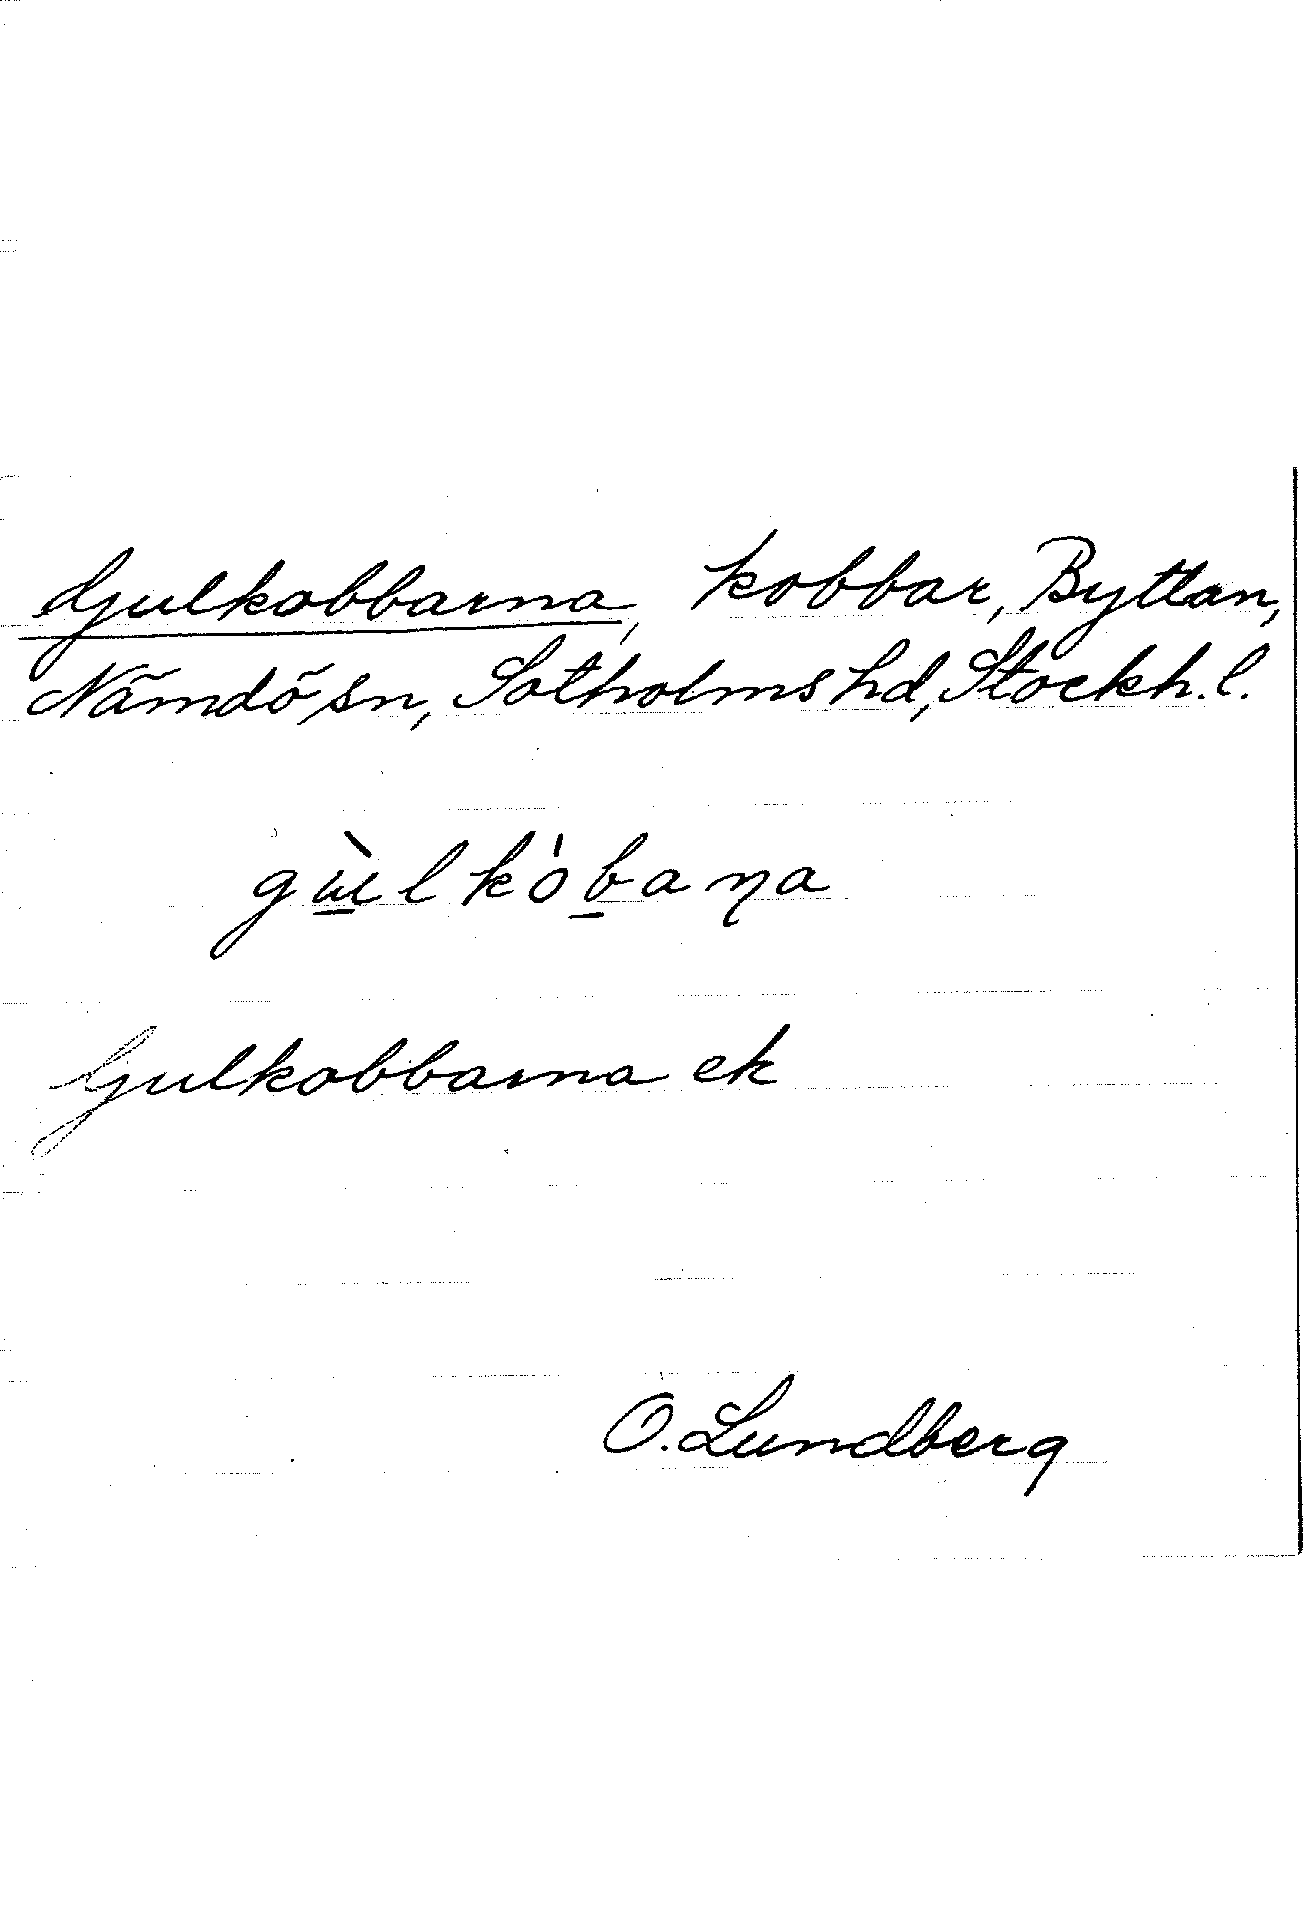 Gulkobbarna, kobbar, Byttan,
Nämdö sn, Sotholms hd, Stockh. l.
gù̱lkób̠aɳa
Gulkobbarna ek
O. Lundberg